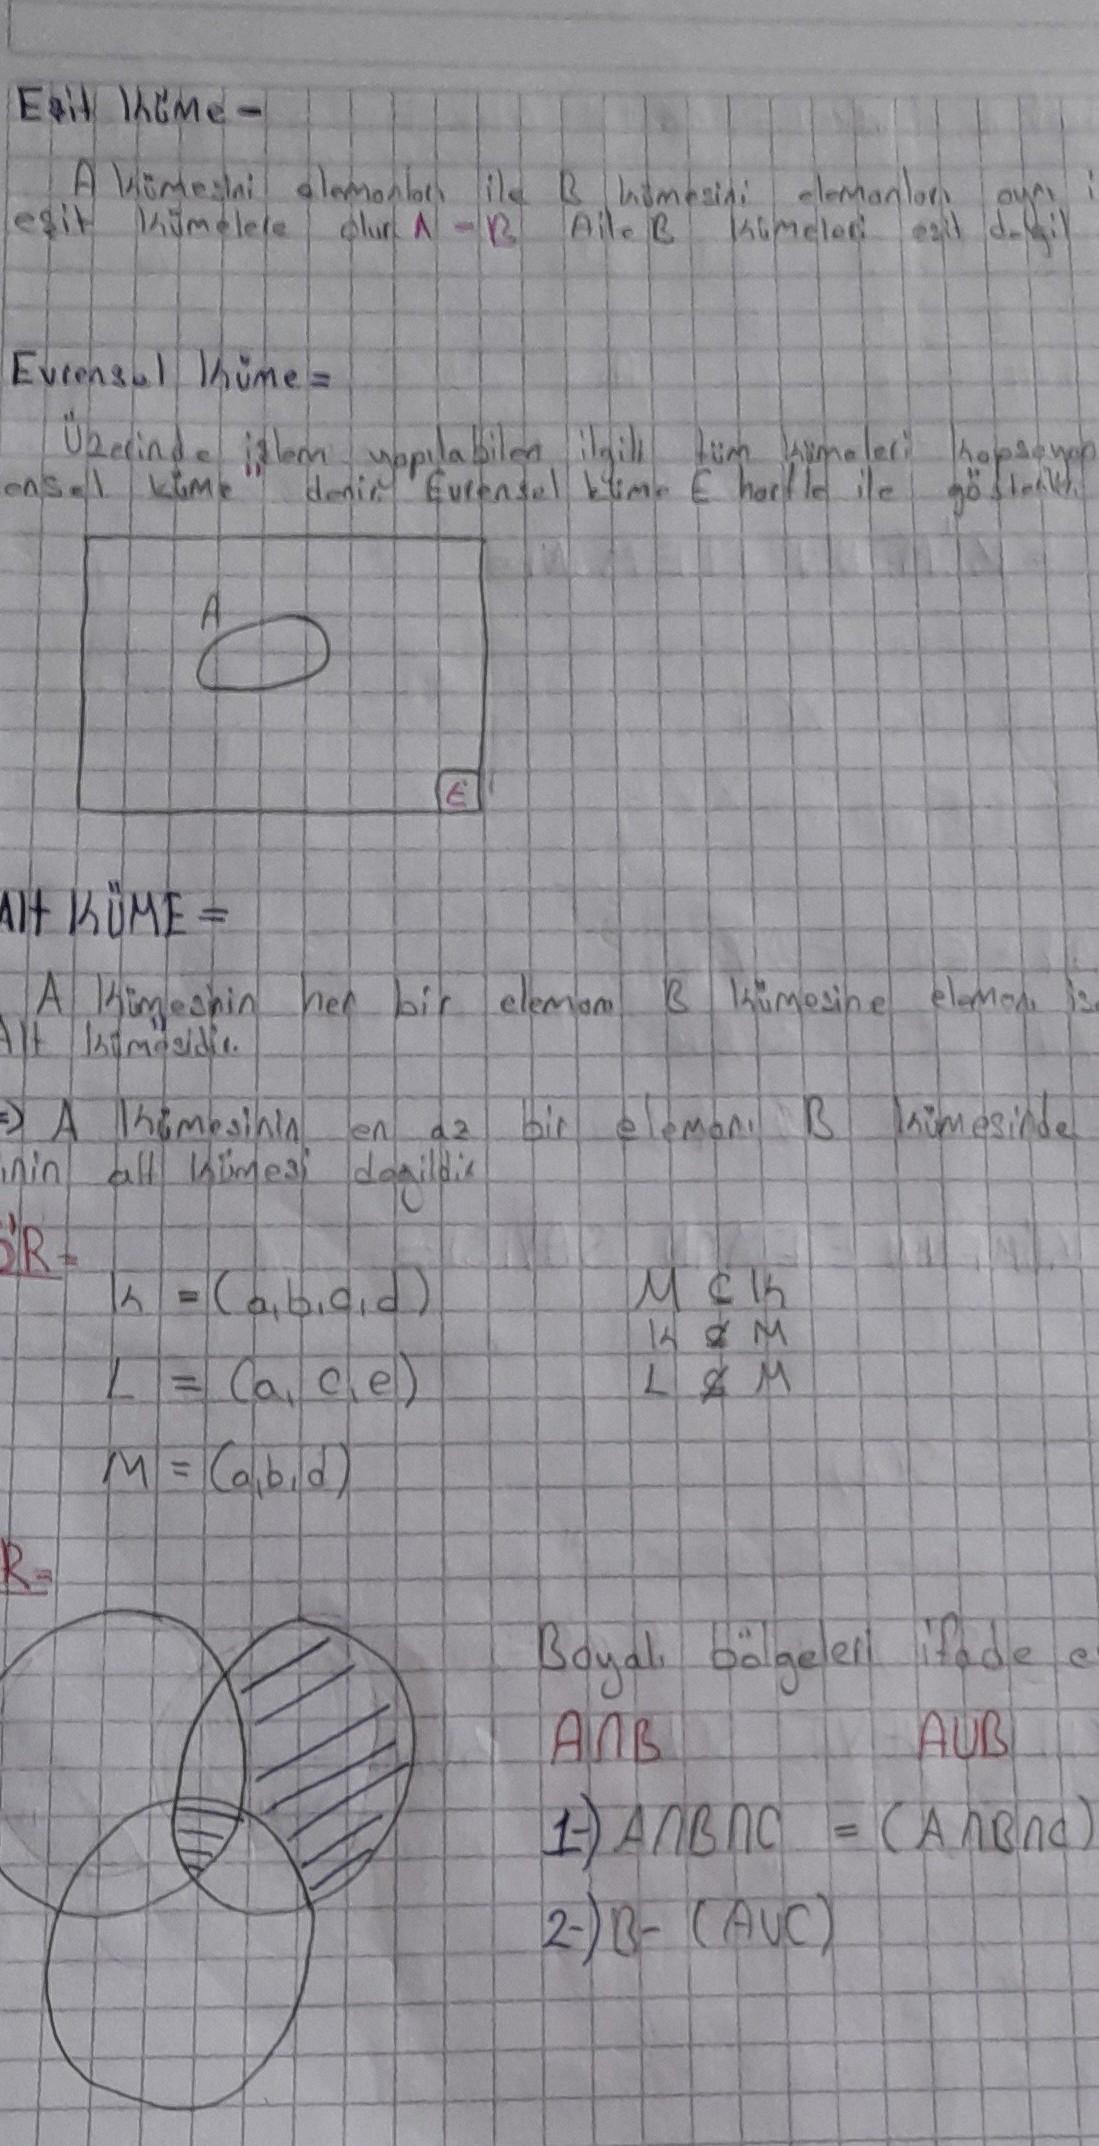 Eşit Küme =
A kümesini elemanları ile B kümesini elemanları aynı i
eşit kümelere olur A = B A ile B kümeleri eşit değil
Evrensel Küme =
Üzerinde işlem yapılabilen ilgili tüm kümeleri kapsayan
ensel küme" denir Evrensel küme E harfle ile gösterilir.
A
E
Alt KÜME =
A kümesnin her bir elemanı B kümesine elemanı ise
Alt kümesidir.
=) A kümesinin en az bir elemanı B kümesinde
inin alt kümesi dağildir
ÖR =
K = (a,b,c,d) M ⊂ K
K ⊄ M
L = (a, c, e) L ⊄ M
M = (a,b,d)
R =
Boyalı bölgeleri ifade e
A∩B A∪B
1-) A∩B∩C = (A∩B∩C)
2-) B- (A∪C)